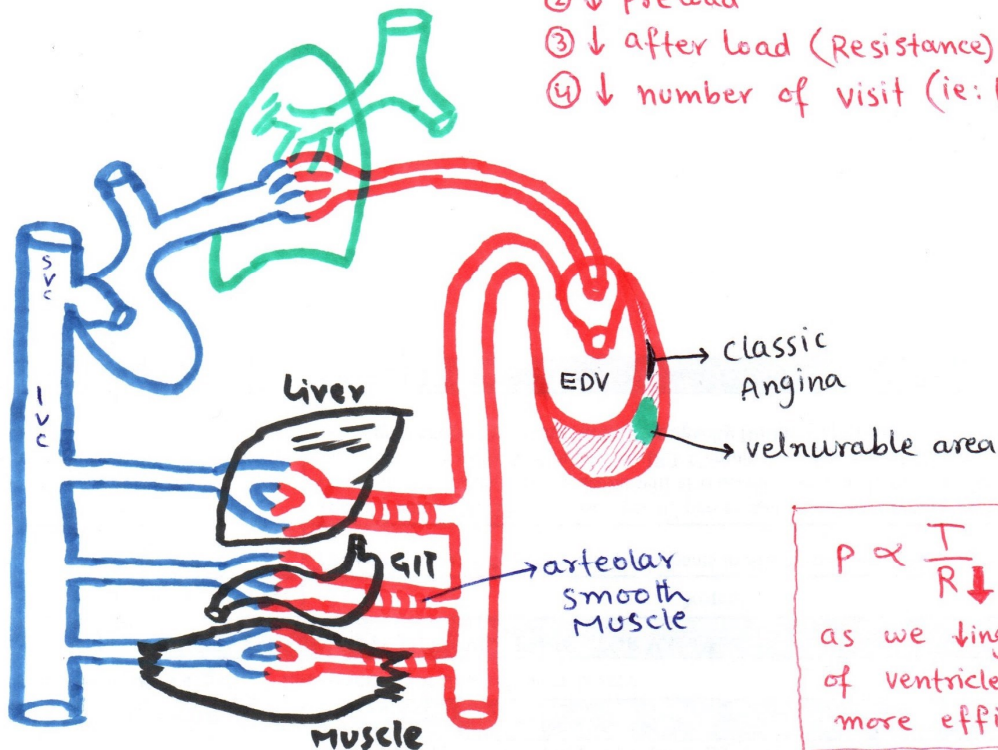 ② ↓ preload
③ ↓ after load (Resistance)
④ ↓ number of visit (ie:
SVC
IVC
Liver
GIT
Muscle
EDV
classic
Angina
velnurable area
arteolar
smooth
Muscle
P ∝ T/R ↓
as we ↓ing
of ventricle
more effi